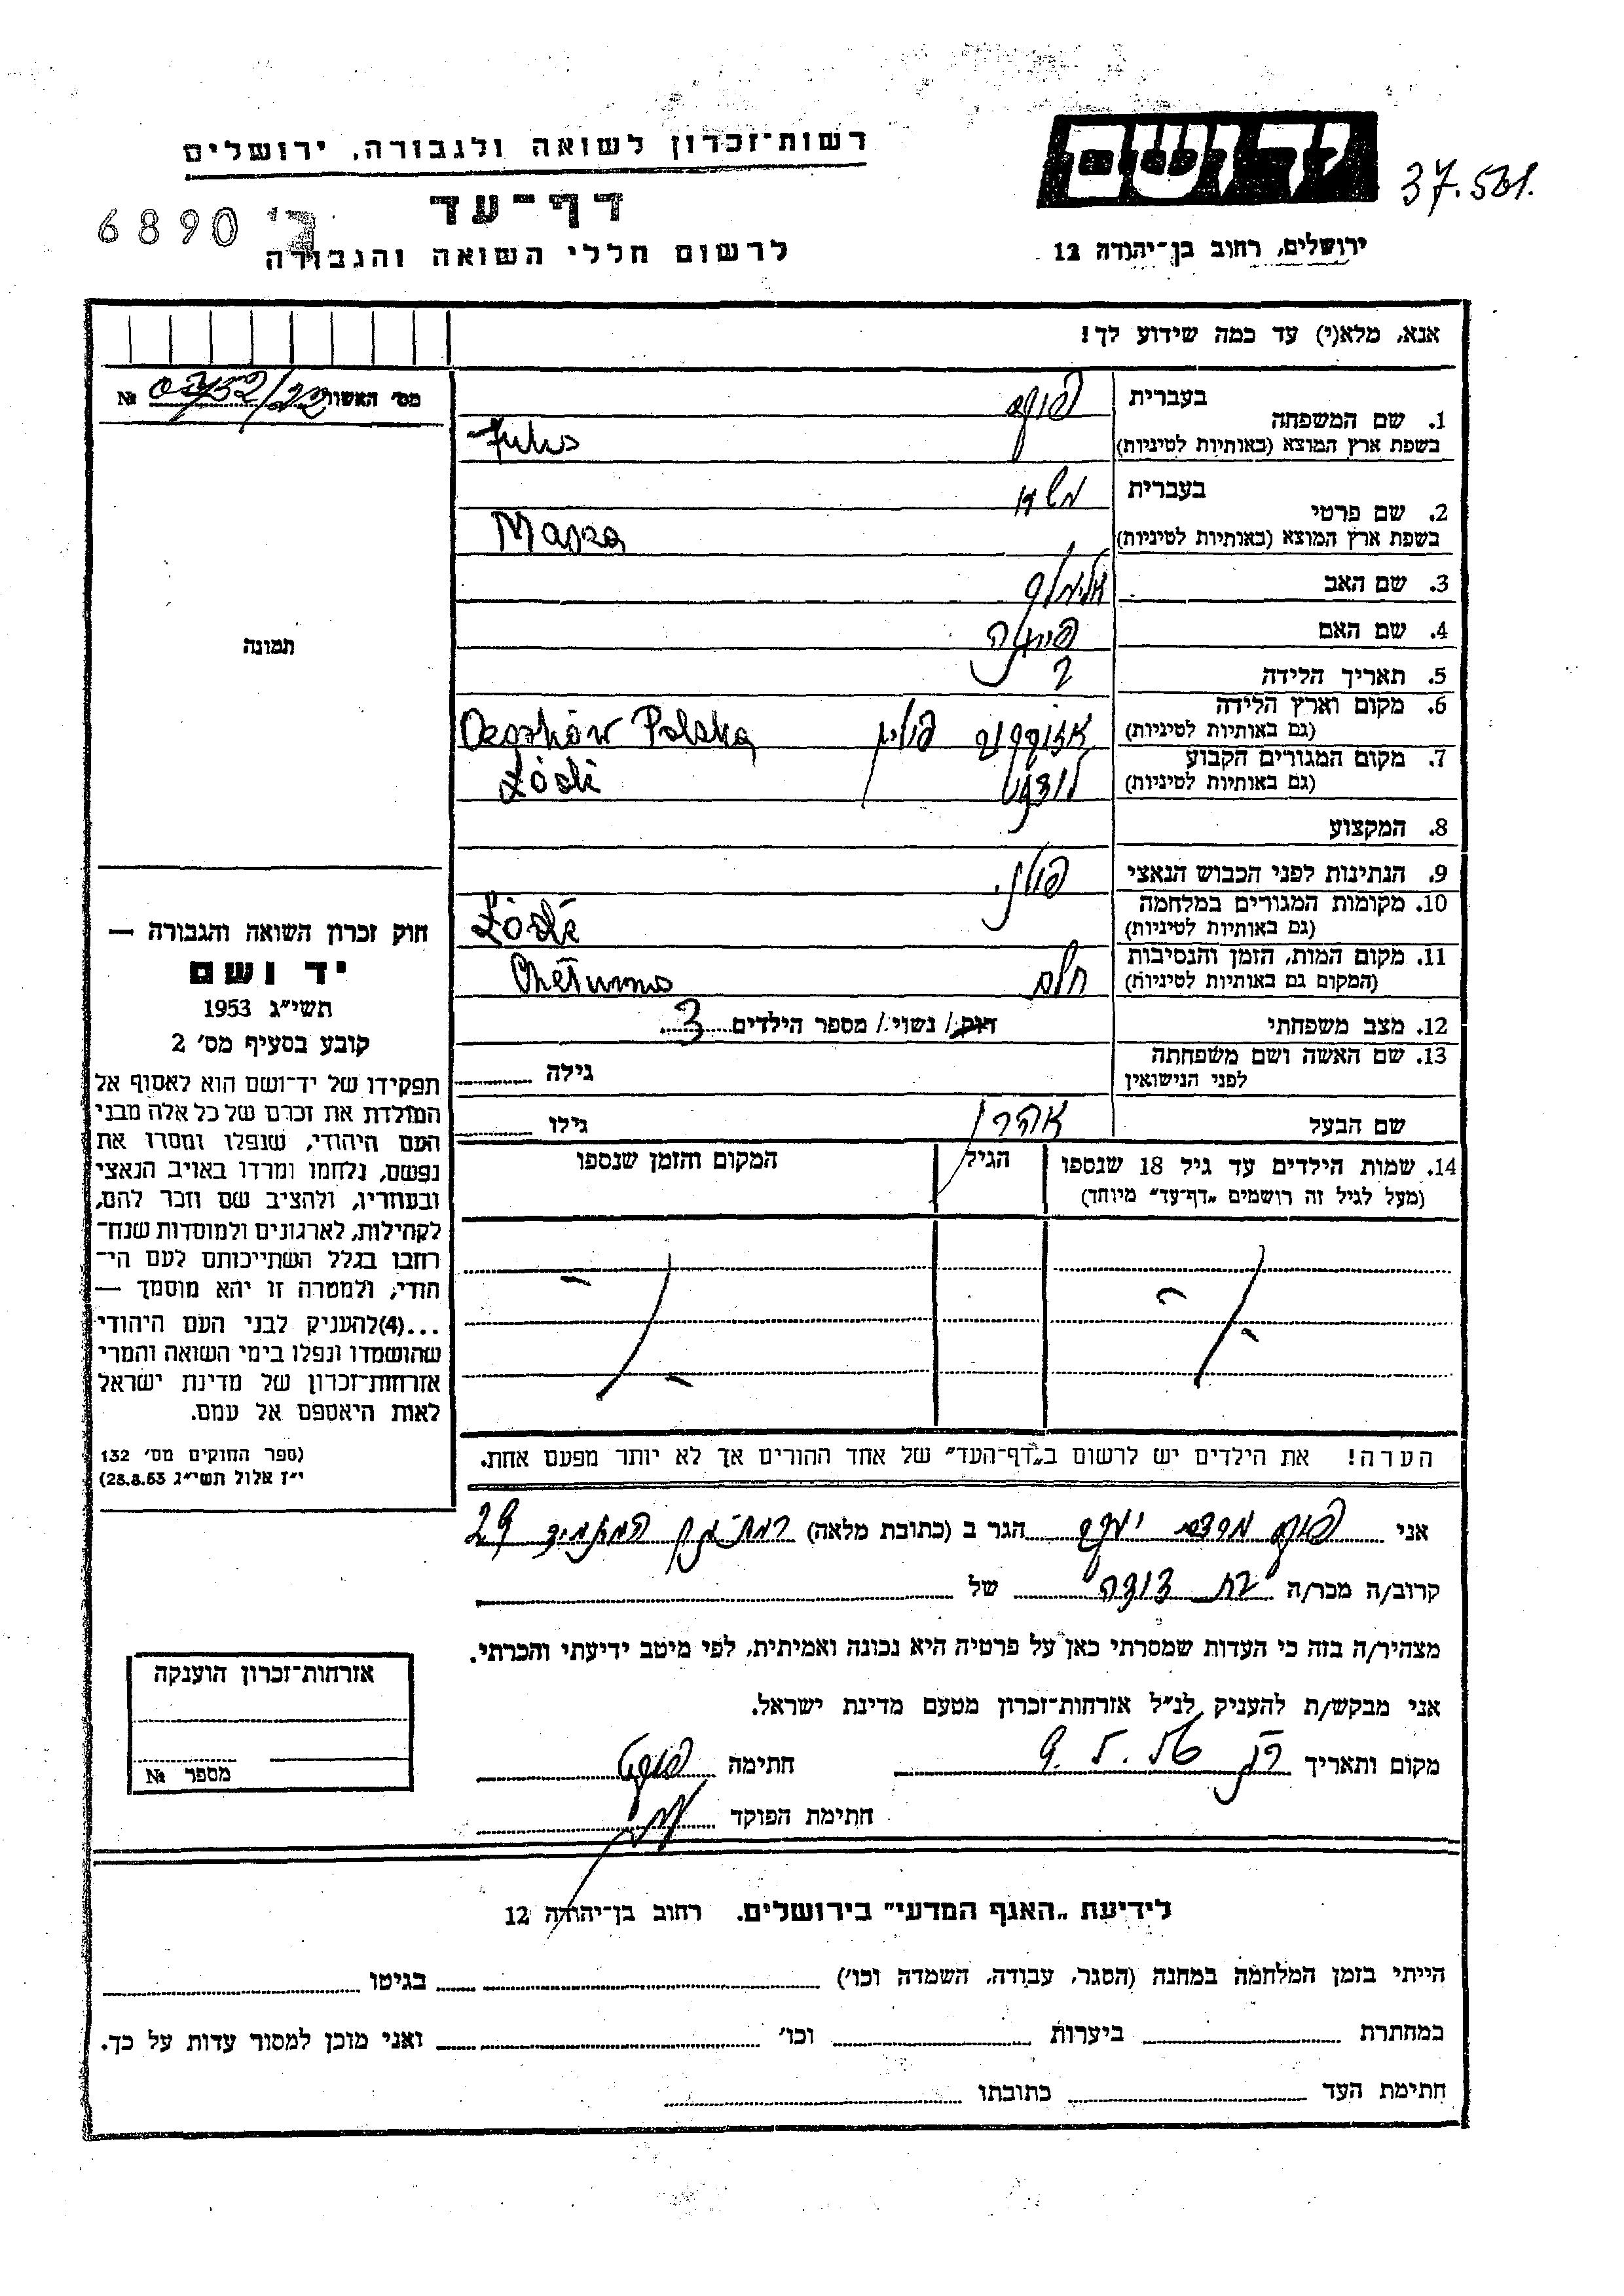 רשות־זכרון לשואה ולגבורה, ירושלים
דף־עד
לרשום חללי השואה והגבורה
6890
יד ושם
ירושלים, רחוב בן־יהודה 12
אנא, מלא(י) עד כמה שידוע לך!
מס׳ האשור №
תמונה
1. שם המשפחה בעברית
בשפת ארץ המוצא (באותיות לטיניות)
2. שם פרטי בעברית
בשפת ארץ המוצא (באותיות לטיניות)
3. שם האב אלימלך
4. שם האם
5. תאריך הלידה ?
6. מקום וארץ הלידה פולין Ozorków Polska
(גם באותיות לטיניות)
7. מקום המגורים הקבוע Łódź
(גם באותיות לטיניות)
8. המקצוע
9. הנתינות לפני הכבוש הנאצי פולנית
10. מקומות המגורים במלחמה Łódź
(גם באותיות לטיניות)
11. מקום המות, הזמן והנסיבות חלם Chełmno
(המקום גם באותיות לטיניות)
12. מצב משפחתי רוק/ נשוי/ מספר הילדים 3
13. שם האשה ושם משפחתה גילה
לפני הנישואין
שם הבעל אהרן גילו
14. שמות הילדים עד גיל 18 שנספו הגיל המקום והזמן שנספו
(מעל לגיל זה רושמים „דף־עד״ מיוחד)
הערה! את הילדים יש לרשום ב„דף־העד״ של אחד ההורים אך לא יותר מפעם אחת.
חוק זכרון השואה והגבורה —
יד ושם
תשי״ג 1953
קובע בסעיף מס׳ 2
תפקידו של יד־ושם הוא לאסוף אל
המולדת את זכרם של כל אלה מבני
העם היהודי, שנפלו ומסרו את
נפשם, נלחמו ומרדו באויב הנאצי
ובעוזריו, ולהציב שם וזכר להם,
לקהילות, לארגונים ולמוסדות שנח־
רחבו בגלל השתייכותם לעם הי־
הודי, ולמטרה זו יהא מוסמך —
...(4)להעניק לבני העם היהודי
שהושמדו ונפלו בימי השואה והמרי
אזרחות־זכרון של מדינת ישראל
לאות היאספם אל עמם.
(ספר החוקים מס׳ 132
י״ז אלול תשי״ג 28.8.53)
אני הגר ב (כתובת מלאה) רמת־גן המתמיד 29
קרוב/ה מכר/ה בת דודה של
מצהיר/ה בזה כי העדות שמסרתי כאן על פרטיה היא נכונה ואמיתית, לפי מיטב ידיעתי והכרתי.
אני מבקש/ת להעניק לנ״ל אזרחות־זכרון מטעם מדינת ישראל.
מקום ותאריך חתימה
חתימת הפוקד
אזרחות־זכרון הוענקה
מספר №
לידיעת „האגף המדעי״ בירושלים. רחוב בן־יהודה 12
הייתי בזמן המלחמה במחנה (הסגר, עבודה, השמדה וכו׳) בגיטו
במחתרת ביערות וכו׳ ואני מוכן למסור עדות על כך.
חתימת העד כתובתו